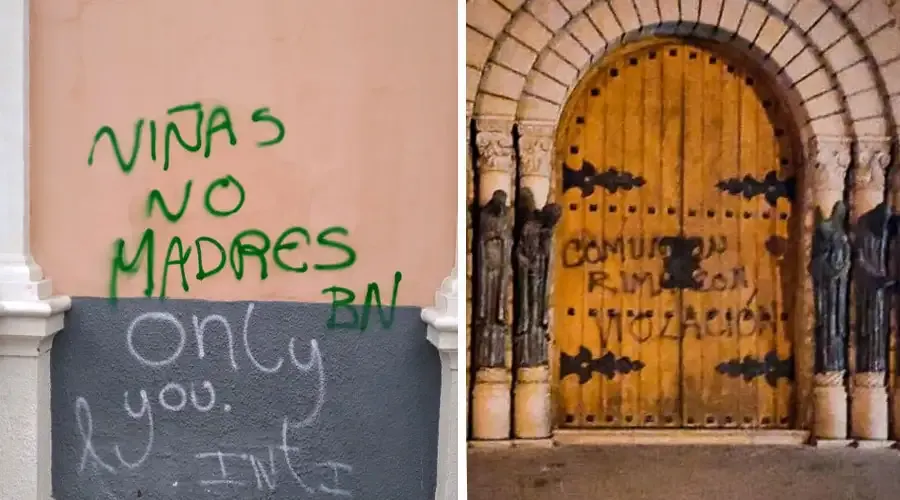 NIÑAS
NO
MADRES
BN
only
you.
COMUNION
RIMA CON
VIOLACIÓN